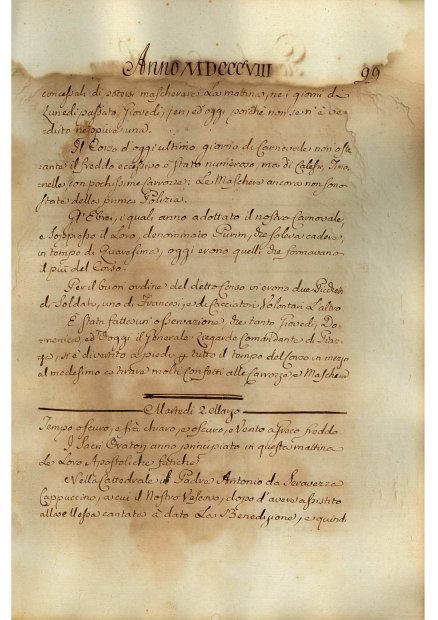 Anno MDCCCVIII 99
concepali di potersi mascherare la mattina, ne i giorni di
Lunedi passato, Giovedi, jeri, ed oggi, perchè non se n'è ve-
duto neppure una.
Il Corso d'oggi ultimo giorno di Carnevale non ost-
tante il freddo eccessivo è stato numeroso, ma di Calessi,
con pochissime Carrozze; Le Maschere ancora non sono
state della prima Pulizia.
Gl'Ebrei, i quali anno adottato il nostro Carnovale,
e soppresso il Loro, denominato Purim, che soleva cadere
in tempo di Quaresima, oggi erono quelli che formavano
il più del Corso.
Per il buon ordine del detto Corso vi erono due
di Soldati, uno di Francesi, e di Cacciatori Volontari l'altro
È stata fatta un'osservazione, che tanto Giovedi, Do-
menica, ed oggi il Generale Comandante di
si è divertito a piedi tutto il tempo del Corso in mezzo
al medesimo a tirare molti Confetti alle Carrozze, e Maschere
Martedi 2 Marzo
Tempo oscuro, e frà chiaro, e oscuro, e Vento a freddo
I Sacri Oratori anno principiato in questa mattina
Le Loro Apostoliche fatiche.
Nella Cattedrale il Padre Antonio da Seravezza
Cappuccino, a cui il Nostro Vescovo, dopo d'avere assistito
alla Messa cantata à dato La Benedizione, e quindi